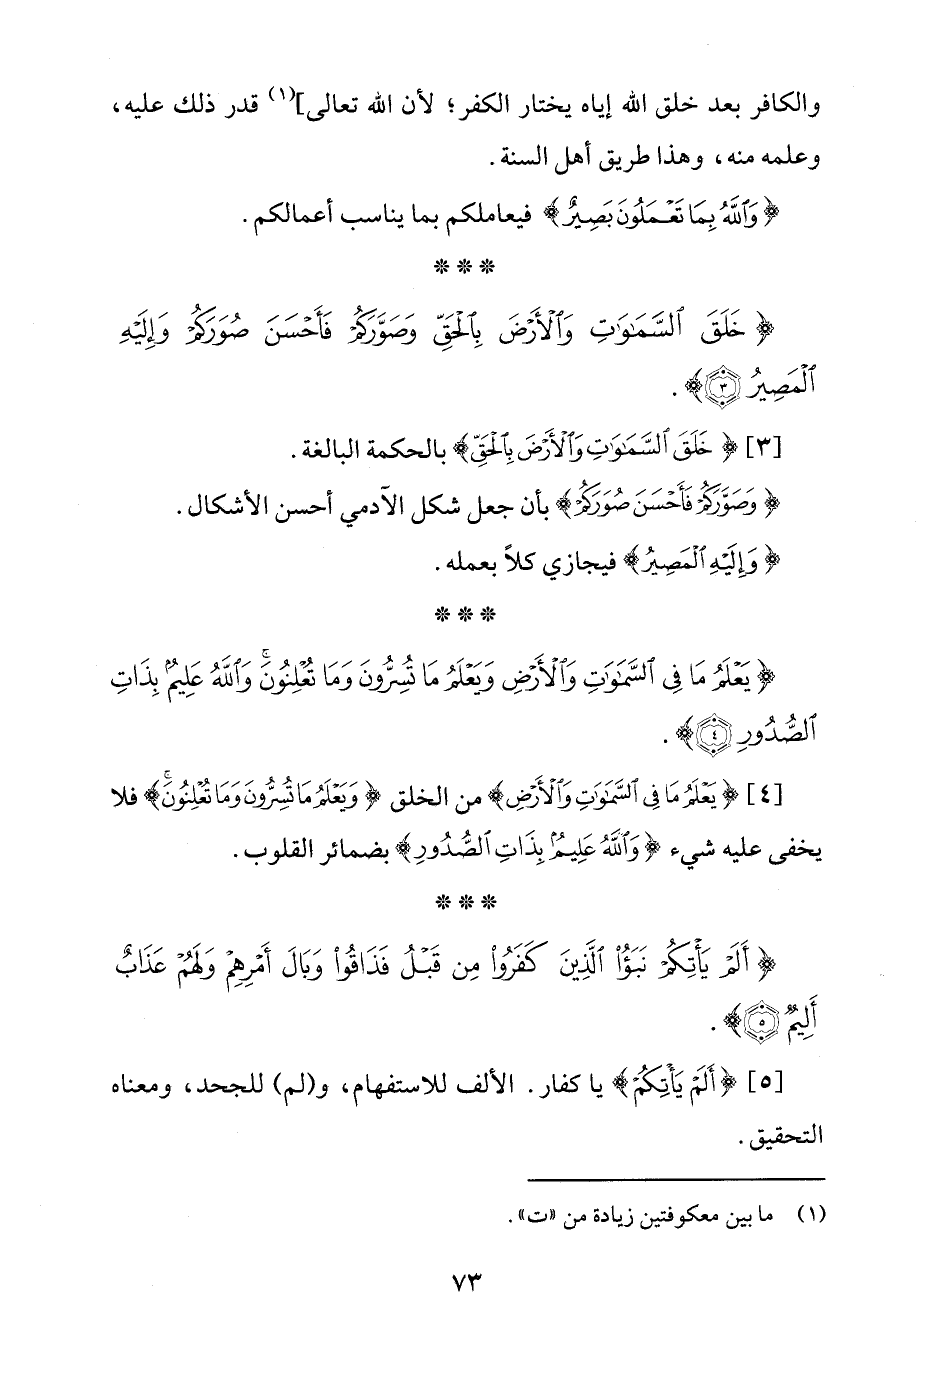 والكافر بعد خلق الله إياه يختار الكفر؛ لأن الله تعالى](١) قدر ذلك عليه،
وعلمه منه، وهذا طريق أهل السنة.
﴿وَٱللَّهُ بِمَا تَعۡمَلُونَ بَصِيرٌ﴾ فيعاملكم بما يناسب أعمالكم.
* * *
﴿خَلَقَ ٱلسَّمَٰوَٰتِ وَٱلۡأَرۡضَ بِٱلۡحَقِّ وَصَوَّرَكُمۡ فَأَحۡسَنَ صُوَرَكُمۡ وَإِلَيۡهِ
ٱلۡمَصِيرُ ٣﴾.
[٣] ﴿خَلَقَ ٱلسَّمَٰوَٰتِ وَٱلۡأَرۡضَ بِٱلۡحَقِّ﴾ بالحكمة البالغة.
﴿وَصَوَّرَكُمۡ فَأَحۡسَنَ صُوَرَكُمۡ﴾ بأن جعل شكل الآدمي أحسن الأشكال.
﴿وَإِلَيۡهِ ٱلۡمَصِيرُ﴾ فيجازي كلاً بعمله.
* * *
﴿يَعۡلَمُ مَا فِي ٱلسَّمَٰوَٰتِ وَٱلۡأَرۡضِ وَيَعۡلَمُ مَا تُسِرُّونَ وَمَا تُعۡلِنُونَۚ وَٱللَّهُ عَلِيمُۢ بِذَاتِ
ٱلصُّدُورِ ٤﴾.
[٤] ﴿يَعۡلَمُ مَا فِي ٱلسَّمَٰوَٰتِ وَٱلۡأَرۡضِ﴾ من الخلق ﴿وَيَعۡلَمُ مَا تُسِرُّونَ وَمَا تُعۡلِنُونَۚ﴾ فلا
يخفى عليه شيء ﴿وَٱللَّهُ عَلِيمُۢ بِذَاتِ ٱلصُّدُورِ﴾ بضمائر القلوب.
* * *
﴿أَلَمۡ يَأۡتِكُمۡ نَبَؤُاْ ٱلَّذِينَ كَفَرُواْ مِن قَبۡلُ فَذَاقُواْ وَبَالَ أَمۡرِهِمۡ وَلَهُمۡ عَذَابٌ
أَلِيمٞ ٥﴾.
[٥] ﴿أَلَمۡ يَأۡتِكُمۡ﴾ يا كفار. الألف للاستفهام، و(لم) للجحد، ومعناه
التحقيق.
(١) ما بين معكوفتين زيادة من «ت».
٧٣